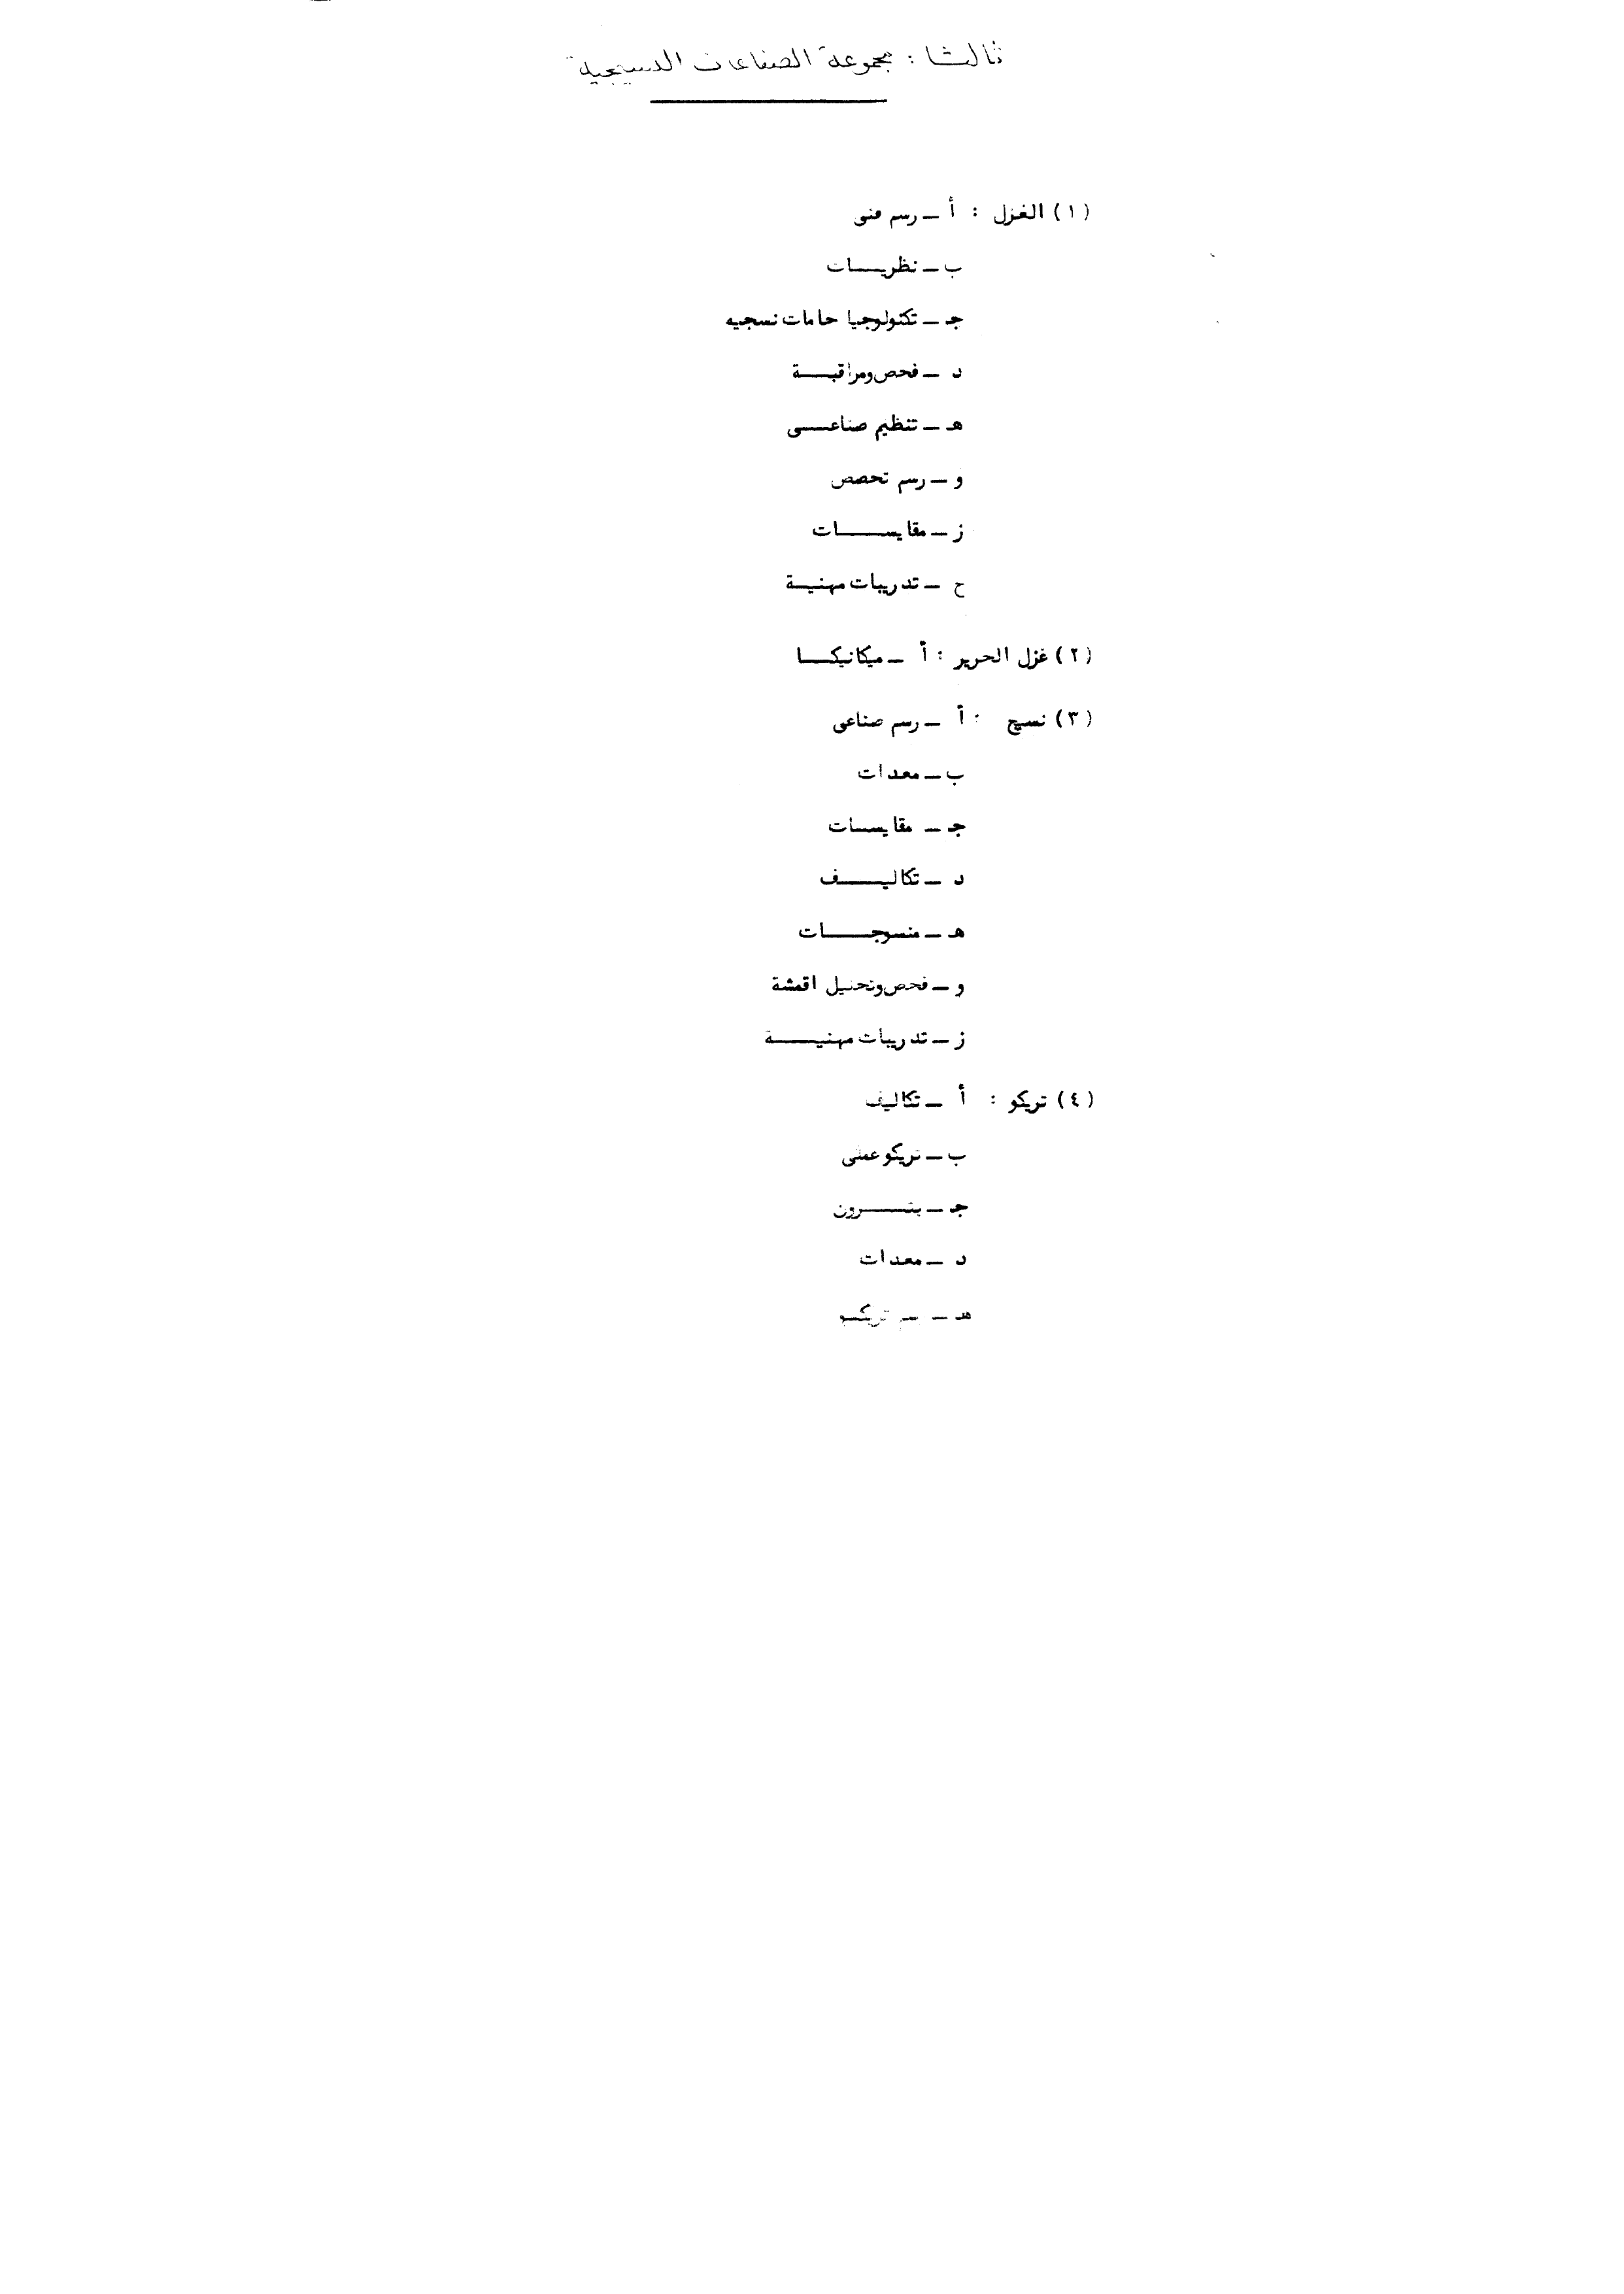 ثالثا : مجموعة الصناعات النسيجية
(١) الغزل : أ ـ رسم فنى
ب ـ نظريـــات
جـ ـ تكنولوجيا خامات نسجيه
د ـ فحص ومراقبـــة
هـ ـ تنظيم صناعـــى
و ـ رسم تخصص
ز ـ مقايســـات
ح ـ تدريبات مهنيـة
(٢) غزل الحرير : أ ـ ميكانيكـــا
(٣) نسيج : أ ـ رسم صناعى
ب ـ معدات
جـ ـ مقايسـات
د ـ تكاليـــف
هـ ـ منسوجـــات
و ـ فحص وتحليل اقمشة
ز ـ تدريبات مهنيـــة
(٤) تريكو : أ ـ تكاليف
ب ـ تريكو عملى
جـ ـ بتـــرون
د ـ معدات
هـ ـ رسم تريكـو